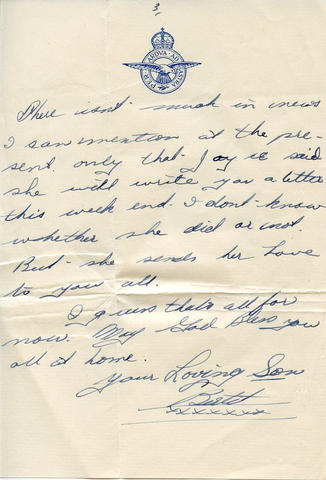 3,
PER ARDVA AD ASTRA
There isn't much in news
I can mention at the pre-
sent. only that Joyce said
she will write you a letter
this week end. I don't know
whether she did or not.
But she sends her Love
to you all.
I guess thats all for
now. May God Bless you
all at home.
Your Loving Son
xxxxxxx